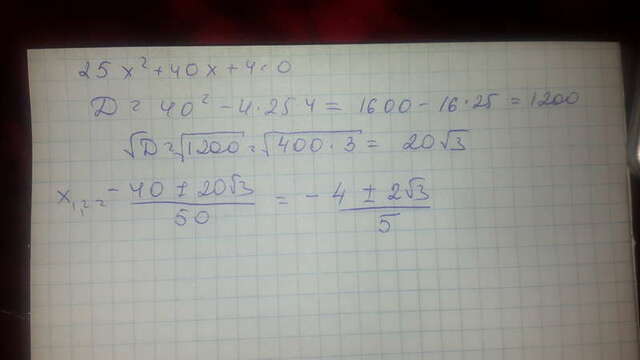 25x²+40x+4=0
D = 40² - 4·25 4 = 1600 - 16·25 = 1200
√D = √1200 = √400·3 = 20√3
x₁,₂ = -40 ± 20√3 / 50 = -4 ± 2√3 / 5